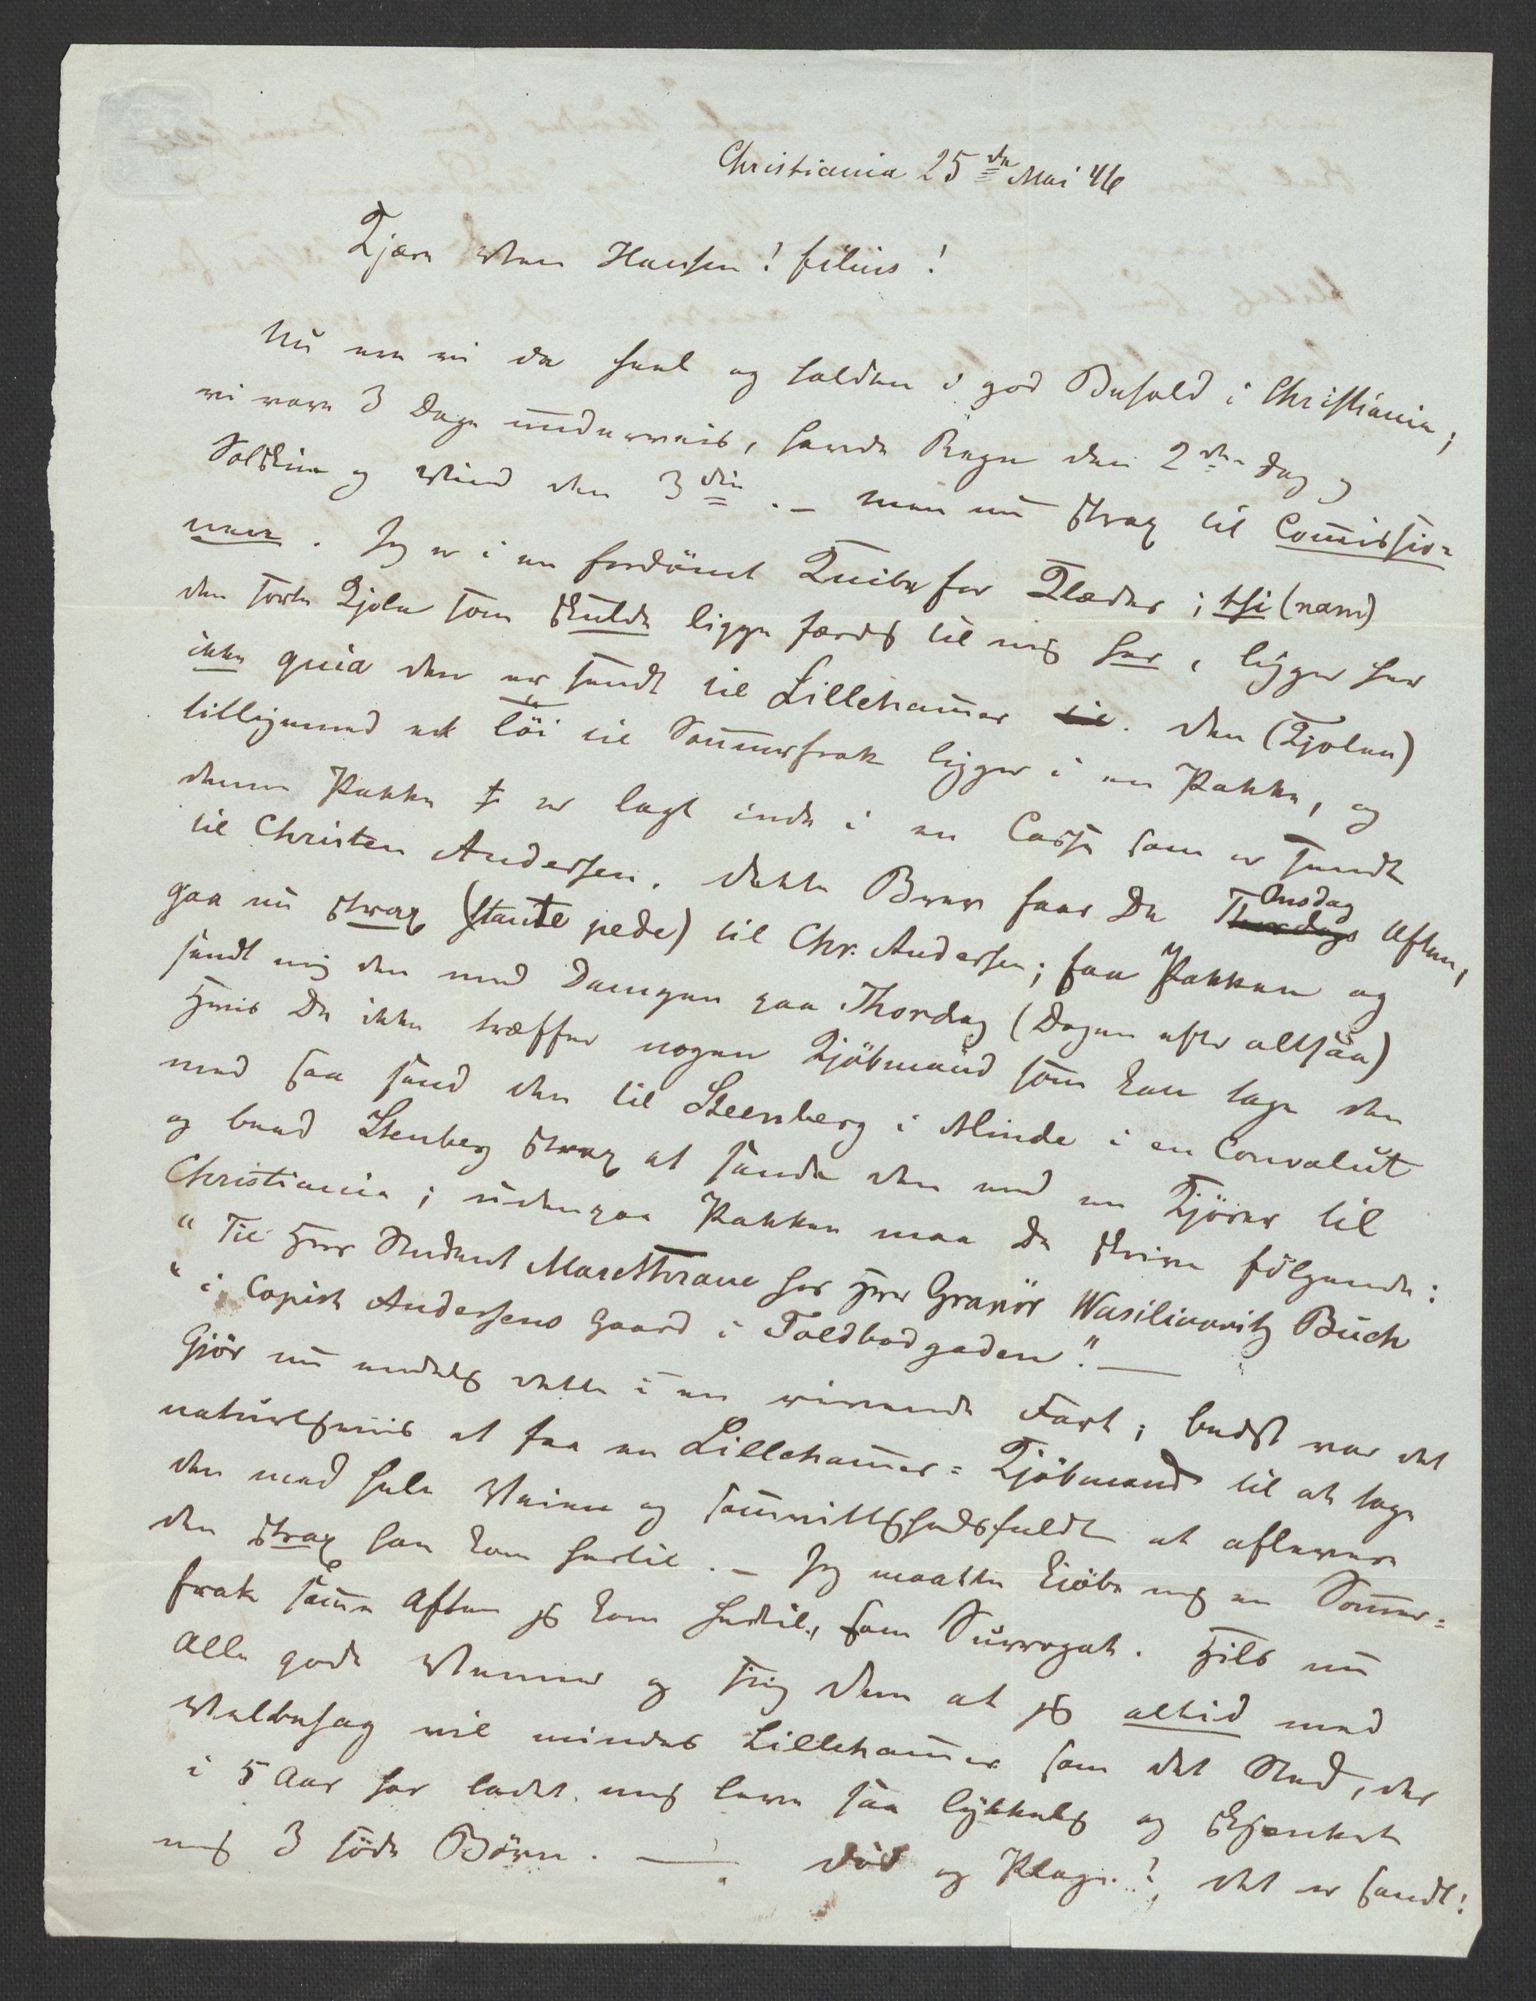 Christiania 25de Mai 46
Kjære Ven Hansen! filius!
Nu ere vi da heel og holden i god Behold i Christiania;
vi vare 3 Dage underveis, havde Regn den 2den Dag og
Solskin og Vind den 3die. – men nu strax til Commissio=
nen. Jeg er i en fordömt Knibe for Klæder; thi (nam)
den sorte Kjole som skulde ligge færdig til mig her, ligger her
ikke quia den er sendt til Lillehammer. Den (Kjolen)
tilligemed et Töi til Sommerfrak ligger i en Pakke, og
denne Pakke er lagt inde i en Casse som er sendt
til Christen Andersen. Dette Brev faar Du Onsdag Aften,
gaa nu strax (stante pede) til Chr. Andersen; faa Pakken og
sendt mig den med Dampen paa Thorsdag (Dagen efter altsaa)
Hvis Du ikke træffer nogen Kjöbmand som kan tage den
med saa send den til Steenberg i Minde i en Convolut
og beed Stenberg strax at sende den med en Kjörer til
Christiania; udenpaa Pakken maa Du skrive følgende:
"Til Herr Student Marc Thrane hos Herr Gregör Wasiliewitz Buch
" i Copist Andersens Gaard i Toldbodgaden". –
Gjör nu endelig dette i en rivende Fart; bedst var det
naturligviis at faa en Lillehammer=Kjöbmand til at tage
den med hele Veien og samvittighedsfuldt at aflevere
den strax han kom hertil. – Jeg maatte kiöbe mig en Sommer=
frak samme Aften jeg kom hertil, som Surrogat. Hils nu
Alle gode Venner og siig dem at jeg altid med
Velbehag vil mindes Lillehammer som det Sted, der
i 5 Aar har ladet mig leve saa lykkelig og skjenket
mig 3 söde Börn. – Död og Plage! det er sandt!